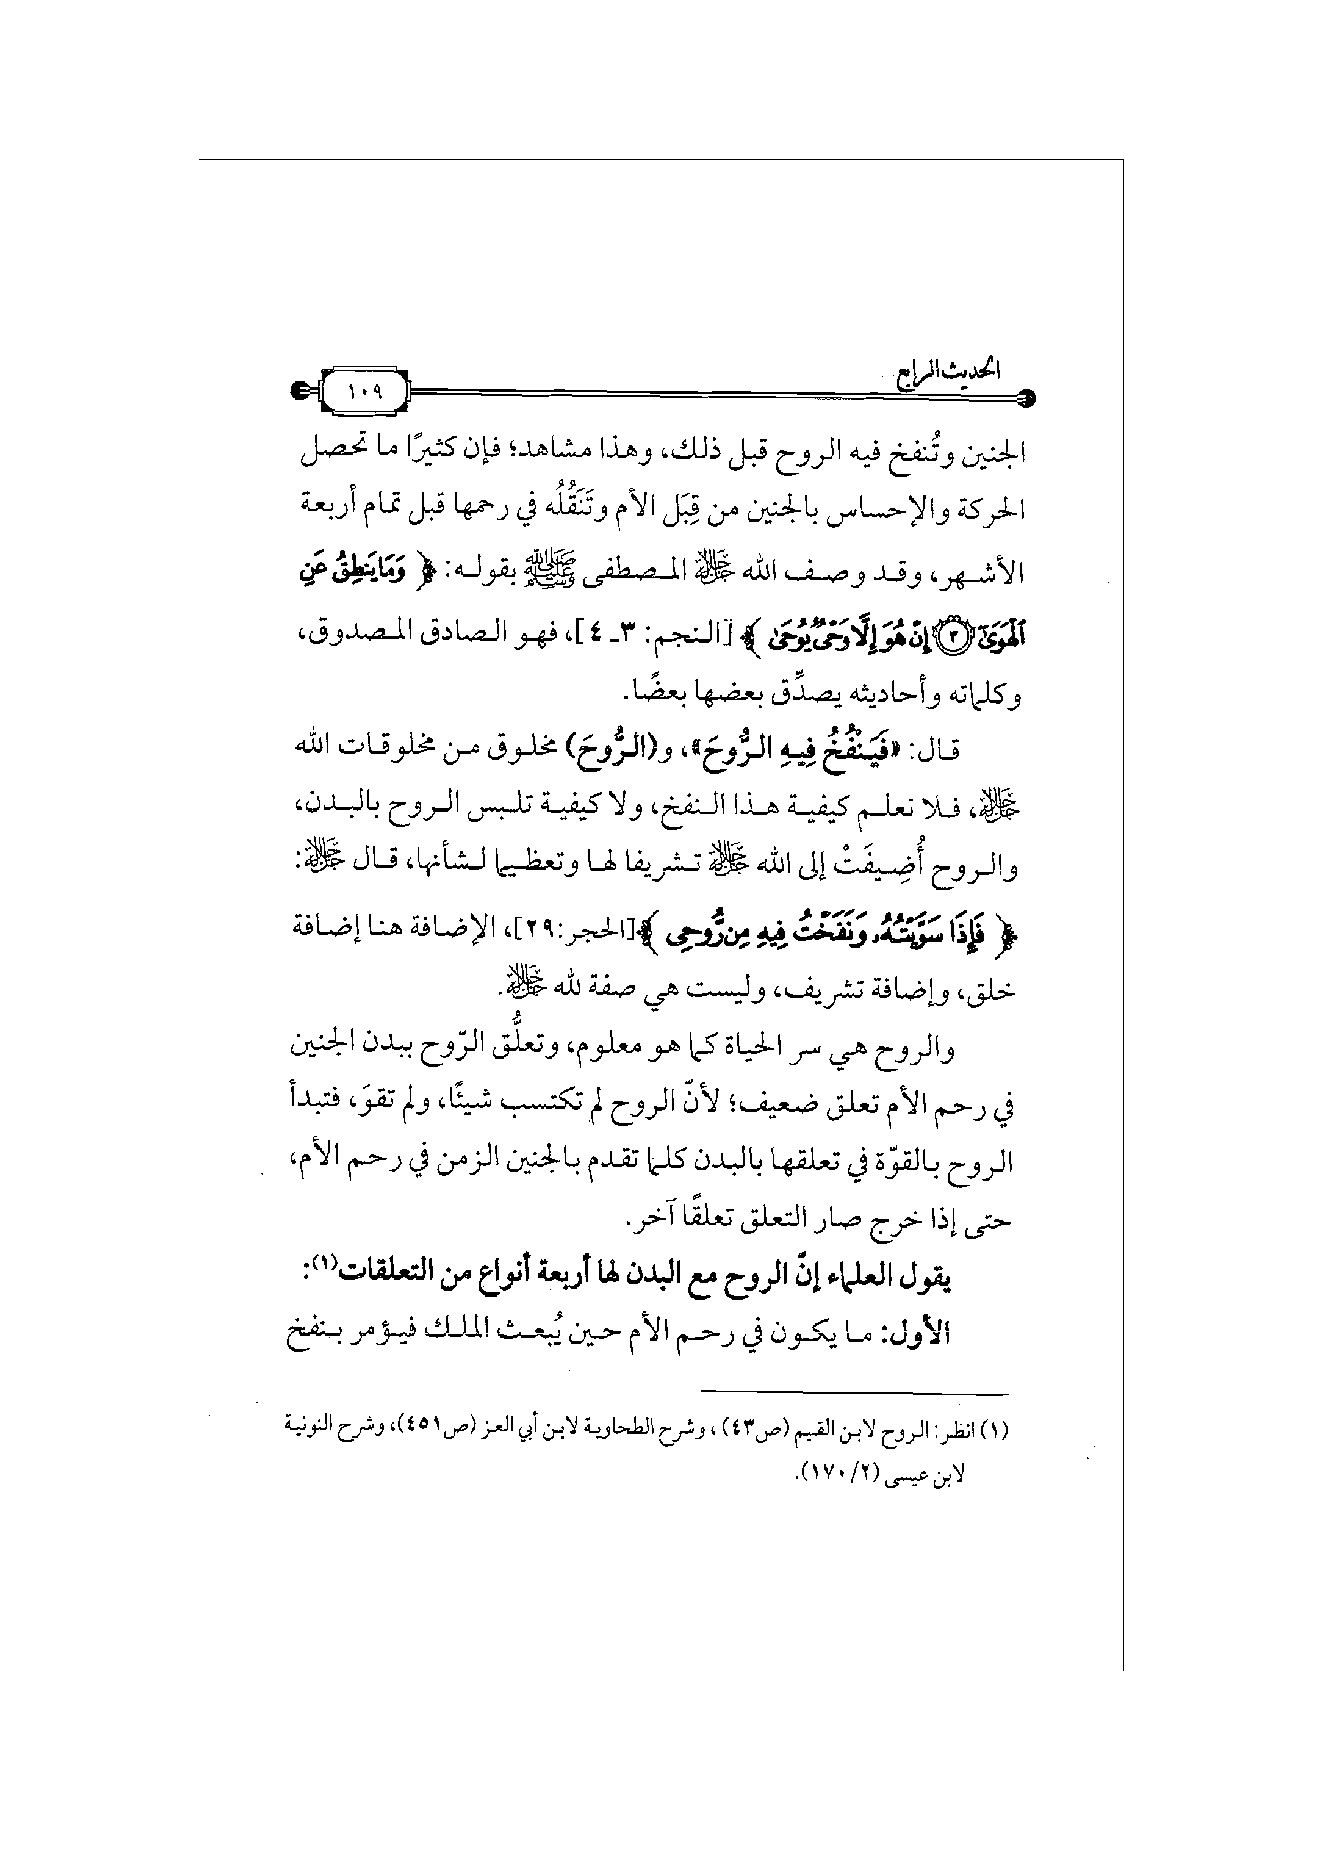 الحديث الرابع
١٠٩
الجنين وتُنفخ فيه الروح قبل ذلك، وهذا مشاهد؛ فإن كثيرًا ما تحصل
الحركة والإحساس بالجنين من قِبَل الأم وتَنَقُّلُه في رحمها قبل تمام أربعة
الأشهر، وقد وصف الله ﷻ المصطفى ﷺ بقوله: ﴿ وَمَا يَنطِقُ عَنِ
ٱلْهَوَىٰٓ ٣ إِنْ هُوَ إِلَّا وَحْىٌ يُوحَىٰ ﴾ [النجم: ٣ـ ٤]، فهو الصادق المصدوق،
وكلماته وأحاديثه يصدِّق بعضها بعضًا.
قال: «فَيَنْفُخُ فِيهِ الرُّوحَ»، و(الرُّوحَ) مخلوق من مخلوقات الله
ﷻ، فلا نعلم كيفية هذا النفخ، ولا كيفية تلبس الروح بالبدن،
والروح أُضِيفَتْ إلى الله ﷻ تشريفا لها وتعظيما لشأنها، قال ﷻ:
﴿ فَإِذَا سَوَّيْتُهُۥ وَنَفَخْتُ فِيهِ مِن رُّوحِى ﴾[الحجر:٢٩]، الإضافة هنا إضافة
خلق، وإضافة تشريف، وليست هي صفة لله ﷻ.
والروح هي سر الحياة كما هو معلوم، وتعلُّق الرّوح ببدن الجنين
في رحم الأم تعلق ضعيف؛ لأنّ الروح لم تكتسب شيئًا، ولم تقوَ، فتبدأ
الروح بالقوّة في تعلقها بالبدن كلما تقدم بالجنين الزمن في رحم الأم،
حتى إذا خرج صار التعلق تعلقًا آخر.
يقول العلماء إنّ الروح مع البدن لها أربعة أنواع من التعلقات(١):
الأول: ما يكون في رحم الأم حين يُبعث الملك فيؤمر بنفخ
(١) انظر: الروح لابن القيم (ص٤٣) ، وشرح الطحاوية لابن أبي العز (ص٤٥١)، وشرح النونية
لابن عيسى (٢/ ١٧٠).